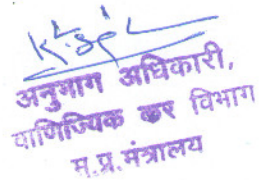 अनुभाग अधिकारी,
वाणिज्यिक कर विभाग
म.प्र.मंत्रालय